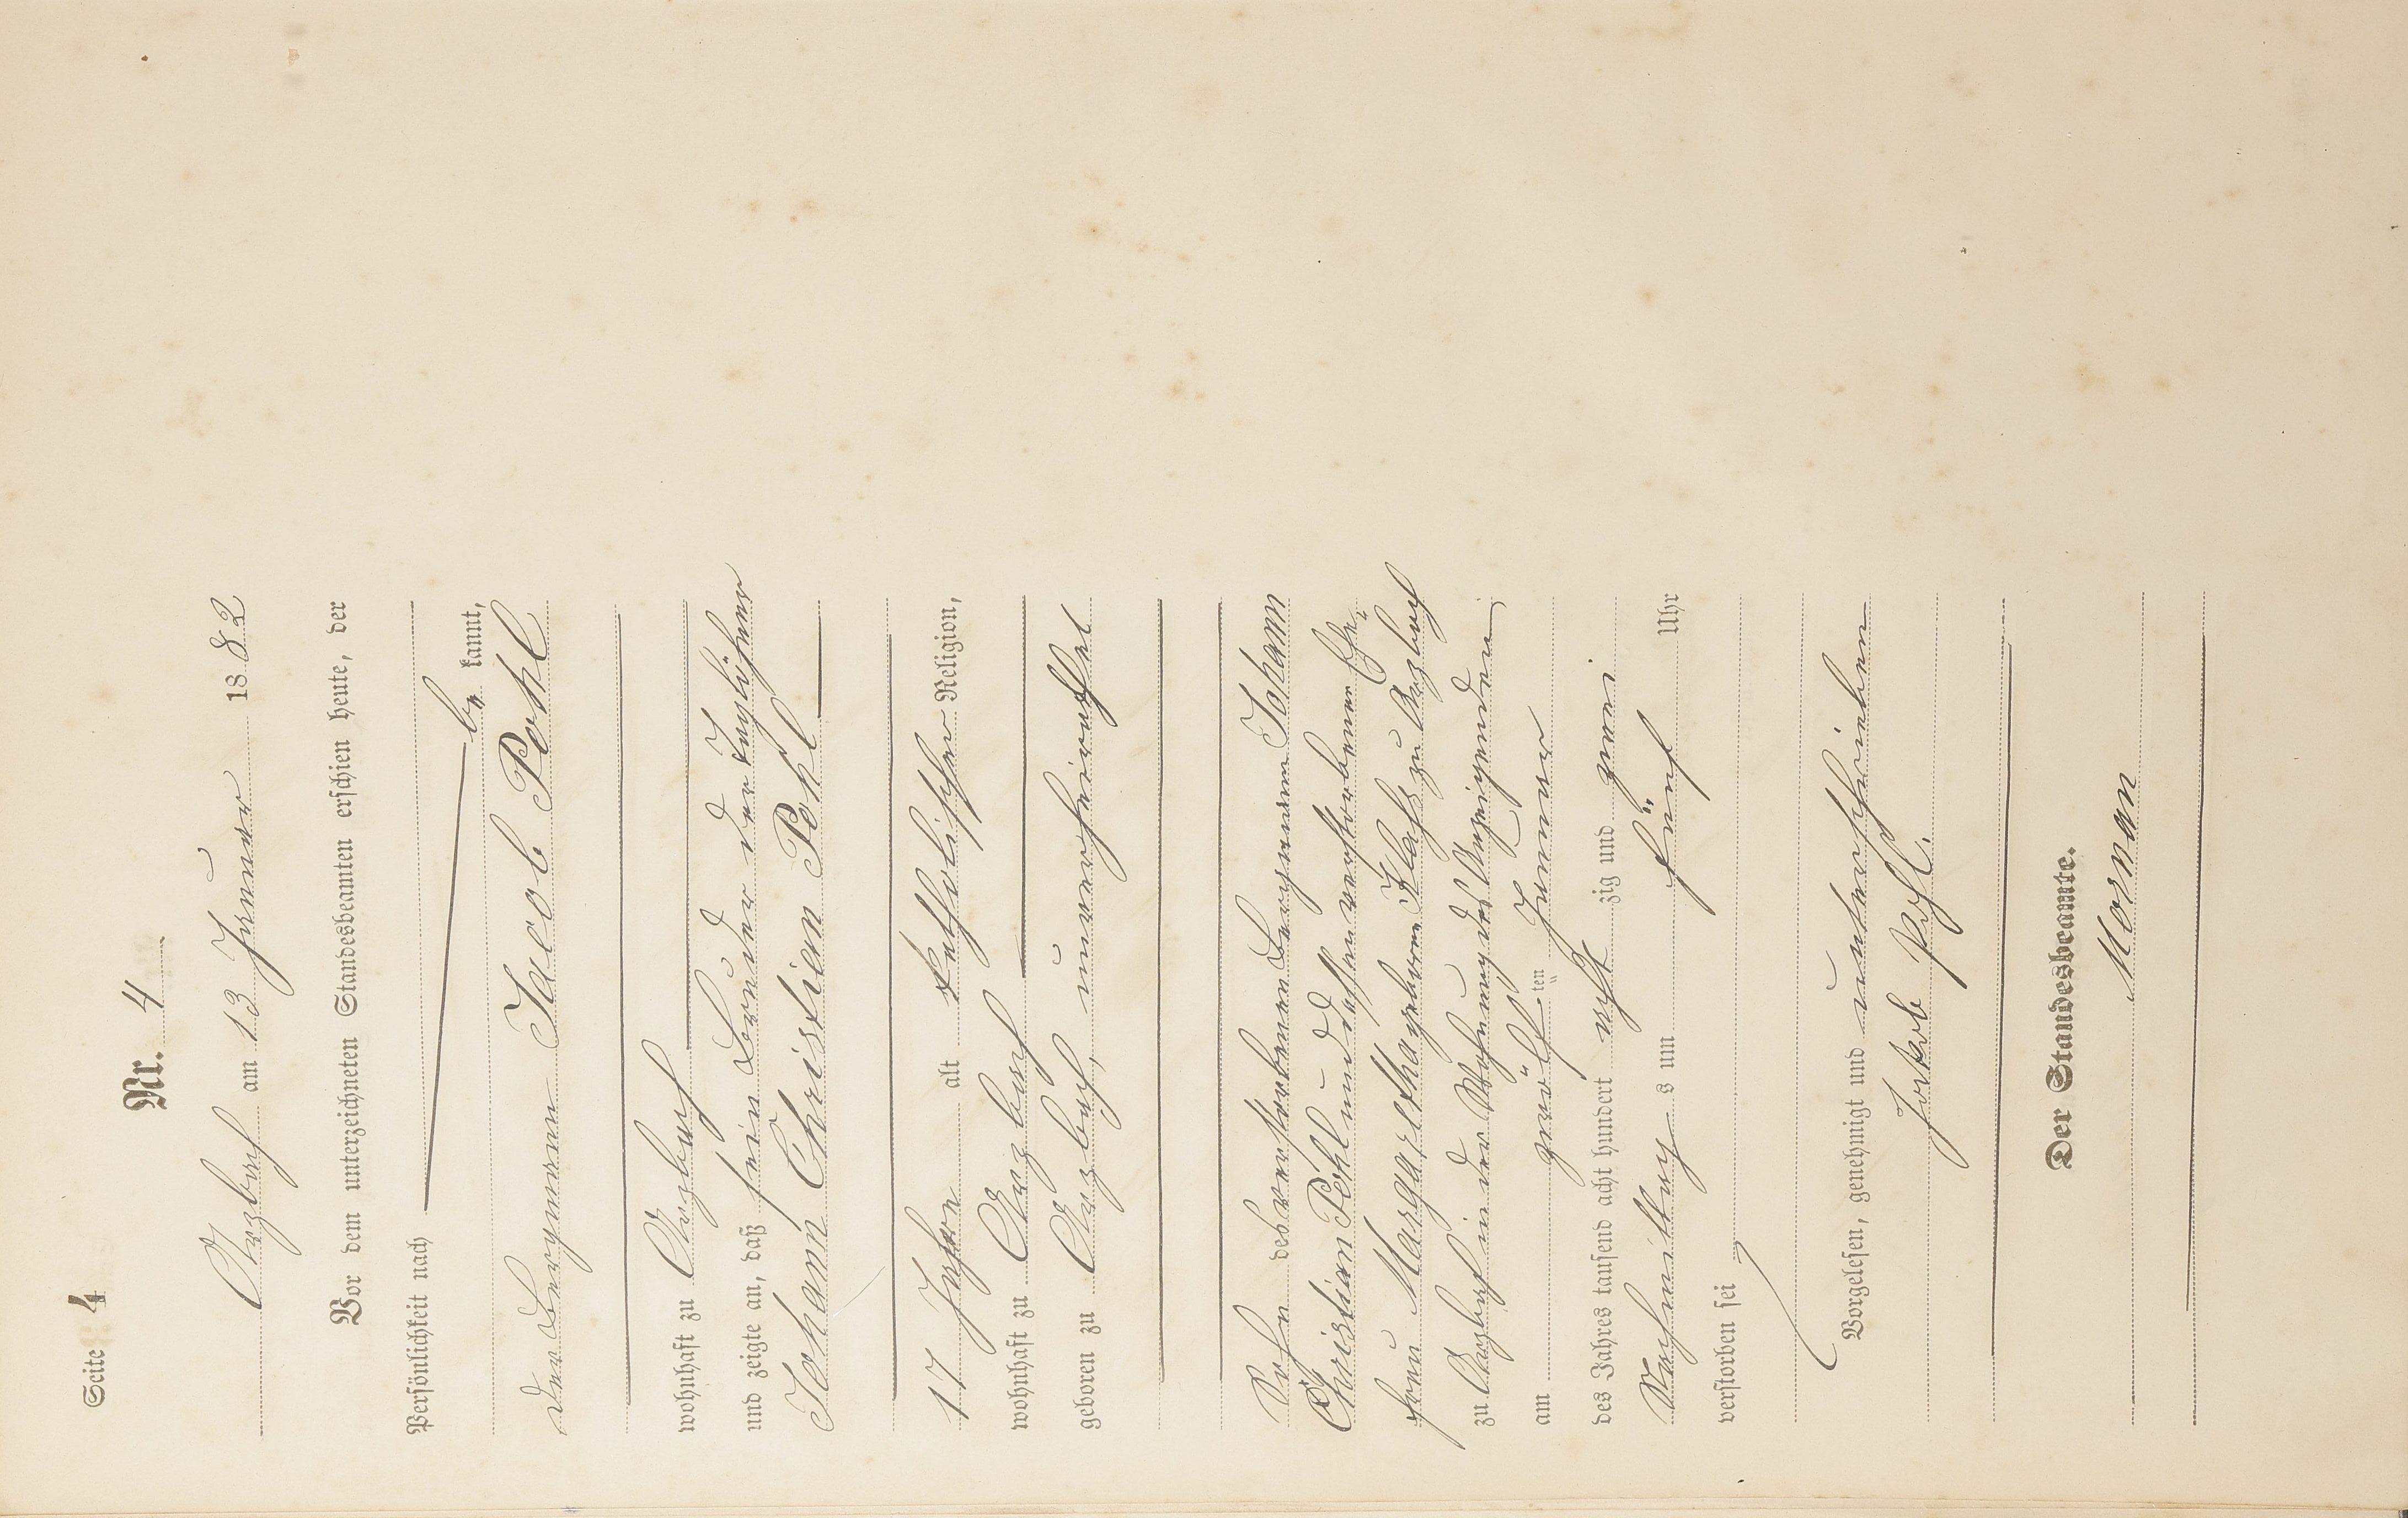 Seite 4
Nr. 4
Arzbach am 13 Januar 1882
Vor dem unterzeichneten Standesbeamten erschien heute, der
Persönlichkeit nach
be kannt,
der Bergmann Jacob Pohl
wohnhaft zu Arzbach
und zeigte an, daß sein Bruder der Taglöhner
Johann Christian Pohl
17 Jahre alt katholischer Religion,
wohnhaft zu Arzbach
geboren zu Arzbach, unverheirathet
Sohn des verstorbenen Bergmann Johann
Christian Pohl und dessen verstorbener Ehe-
frau Margaretha geborne zu Arzbach
zu Arzbach in der Wohnung des Anzeigenden
am zwölften Januar
des Jahres tausend acht hundert acht zig und zwei
Nachmittag s um fünf Uhr
verstorben sei
Vorgelesen, genehmigt und unterschrieben
Jakob Pohl.
Der Standesbeamte.